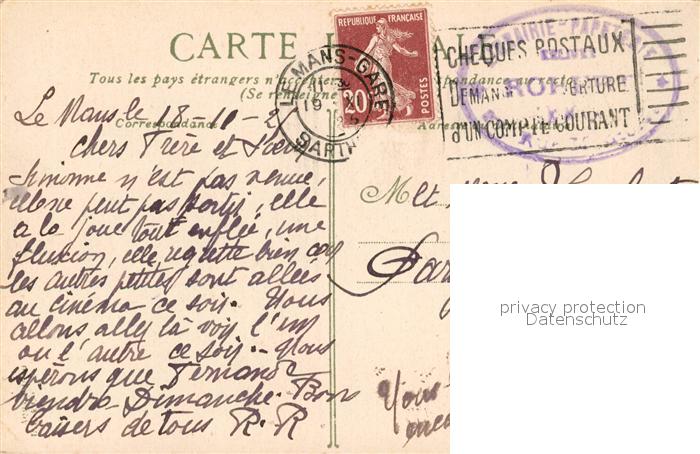 CARTE
Tous les pays étrangers n'acceptent
(Se renseigner
REPUBLIQUE FRANÇAISE
20
POSTES
LE MANS-GARE
SARTHE
CHEQUES POSTAUX
DEMANDEZ OUVERTURE
d'UN COMPTE COURANT
Correspondance
Le Mans le 18-11-2
Chers Frère et Sœur
Simonne n'est pas venue,
elle ne peut pas sortir, elle
a la joue tout enflée, une
fluxion, elle regrette bien car
les autres petites sont allées
au cinéma ce soir. Nous
allons aller la voir l'un
ou l'autre ce soir. Nous
espérons que Fernand
viendra Dimanche. Bons
baisers de tous R. R
M et Mme
privacy protection
Datenschutz